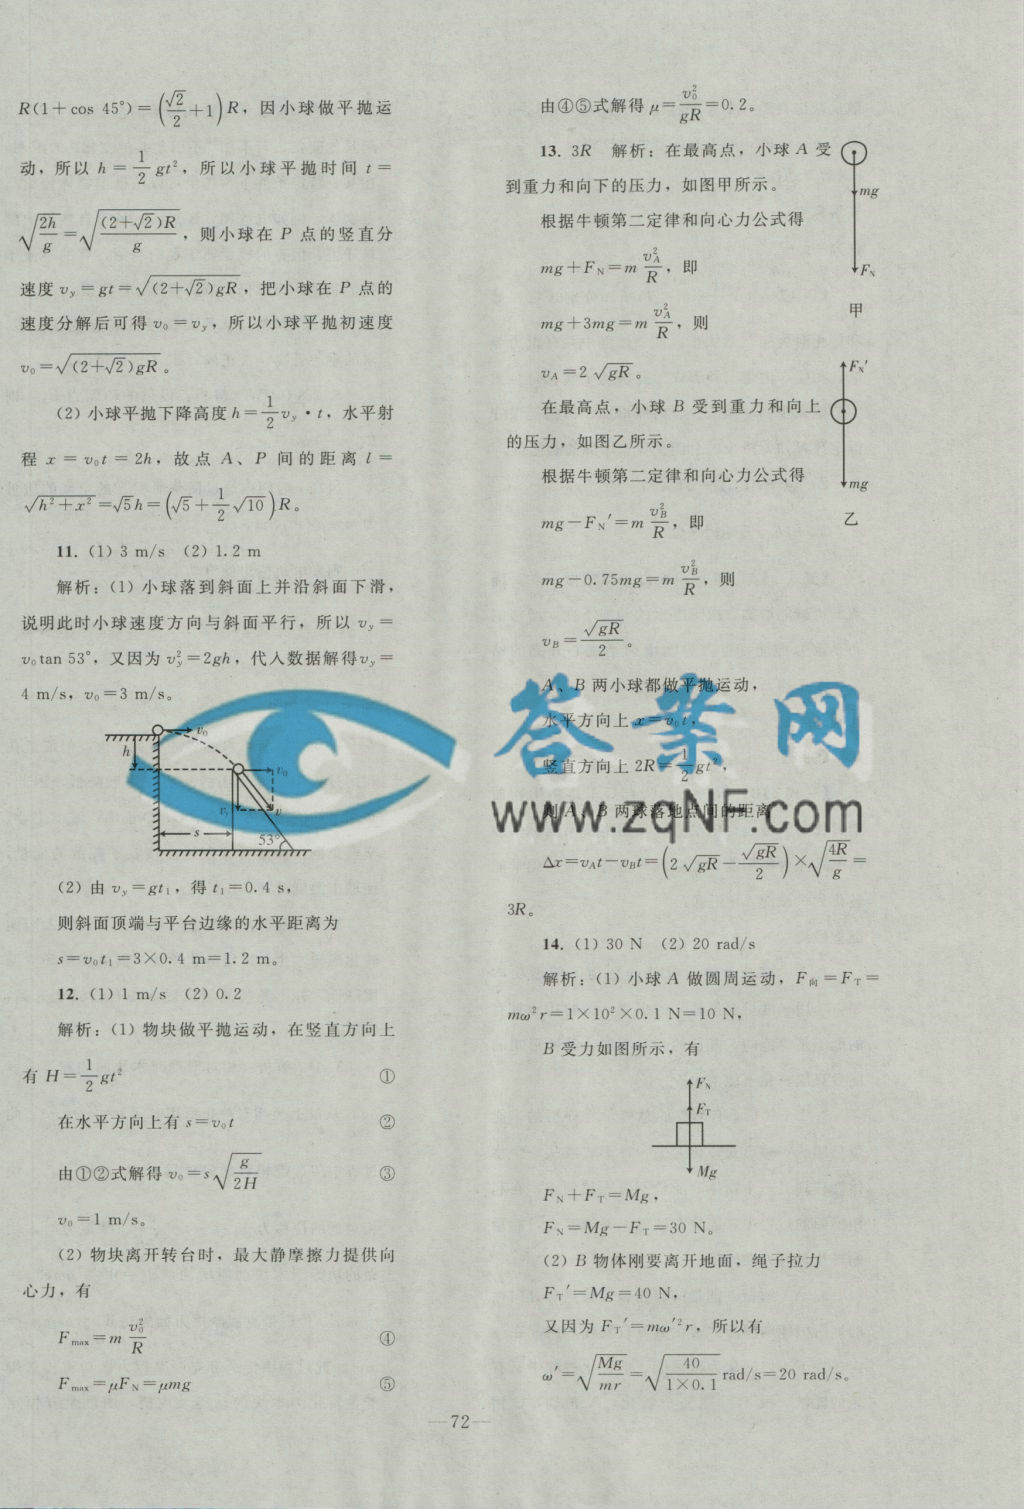 R(1+cos 45°)=(√2/2+1)R，因小球做平抛运
动，所以 h=1/2 gt²，所以小球平抛时间 t=
√(2h/g)=√((2+√2)R/g)，则小球在 P 点的竖直分
速度 v_y=gt=√((2+√2)gR)，把小球在 P 点的
速度分解后可得 v₀=v_y，所以小球平抛初速度
v₀=√((2+√2)gR)。
(2)小球平抛下降高度 h=1/2 v_y·t，水平射
程 x=v₀t=2h，故点 A、P 间的距离 l=
√(h²+x²)=√5h=(√5+1/2√10)R。
11. (1)3 m/s (2)1.2 m
解析：(1)小球落到斜面上并沿斜面下滑，
说明此时小球速度方向与斜面平行，所以 v_y=
v₀tan 53°，又因为 v_y²=2gh，代入数据解得 v_y=
4 m/s，v₀=3 m/s。
v₀
h
v₀
v_y
v
s
53°
(2)由 v_y=gt₁，得 t₁=0.4 s，
则斜面顶端与平台边缘的水平距离为
s=v₀t₁=3×0.4 m=1.2 m。
12. (1)1 m/s (2)0.2
解析：(1)物块做平抛运动，在竖直方向上
有 H=1/2 gt² ①
在水平方向上有 s=v₀t ②
由①②式解得 v₀=s√(g/2H) ③
v₀=1 m/s。
(2)物块离开转台时，最大静摩擦力提供向
心力，有
F_max=m v₀²/R ④
F_max=μF_N=μmg ⑤
由④⑤式解得 μ=v₀²/gR=0.2。
13. 3R 解析：在最高点，小球 A 受
到重力和向下的压力，如图甲所示。
根据牛顿第二定律和向心力公式得
mg+F_N=m v_A²/R，即
mg+3mg=m v_A²/R，则
v_A=2√(gR)。
mg
F_N
甲
在最高点，小球 B 受到重力和向上
的压力，如图乙所示。
根据牛顿第二定律和向心力公式得
mg-F_N′=m v_B²/R，即
mg-0.75mg=m v_B²/R，则
v_B=√(gR)/2。
F_N′
mg
乙
A、B 两小球都做平抛运动，
水平方向上 x=v₀t，
竖直方向上 2R=1/2 gt²，
则 A、B 两球落地点间的距离
Δx=v_At-v_Bt=(2√(gR)-√(gR)/2)×√(4R/g)=
3R。
14. (1)30 N (2)20 rad/s
解析：(1)小球 A 做圆周运动，F向=F_T=
mω²r=1×10²×0.1 N=10 N，
B 受力如图所示，有
F_N
F_T
Mg
F_N+F_T=Mg，
F_N=Mg-F_T=30 N。
(2)B 物体刚要离开地面，绳子拉力
F_T′=Mg=40 N，
又因为 F_T′=mω′²r，所以有
ω′=√(Mg/mr)=√(40/(1×0.1)) rad/s=20 rad/s。
—72—
答案网
www.zqNF.com